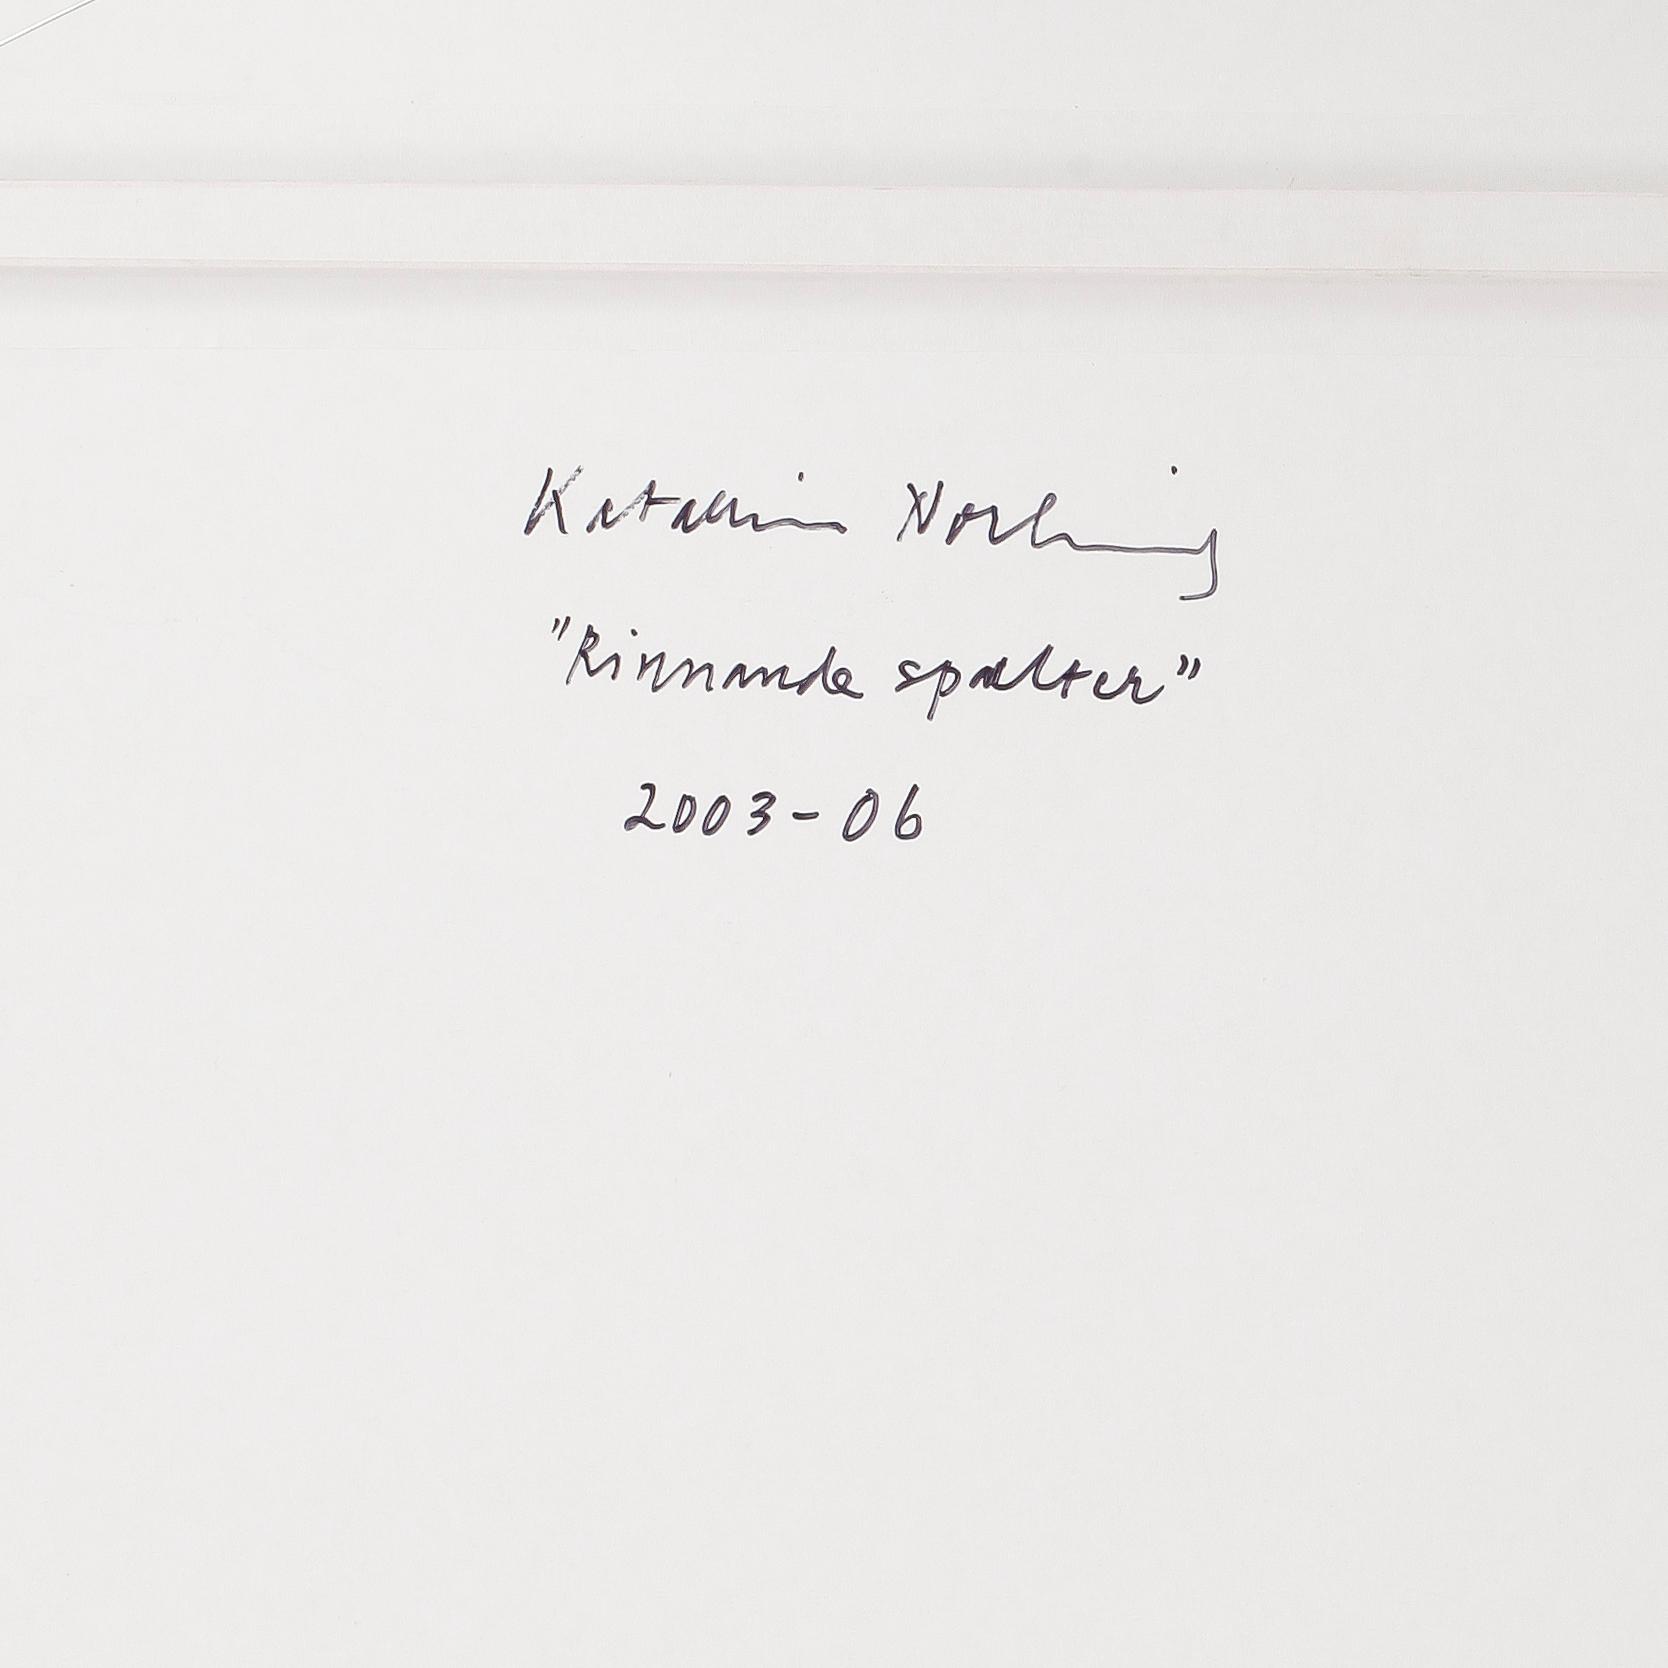 Katarina Norling
"Rinnande spalter"
2003-06